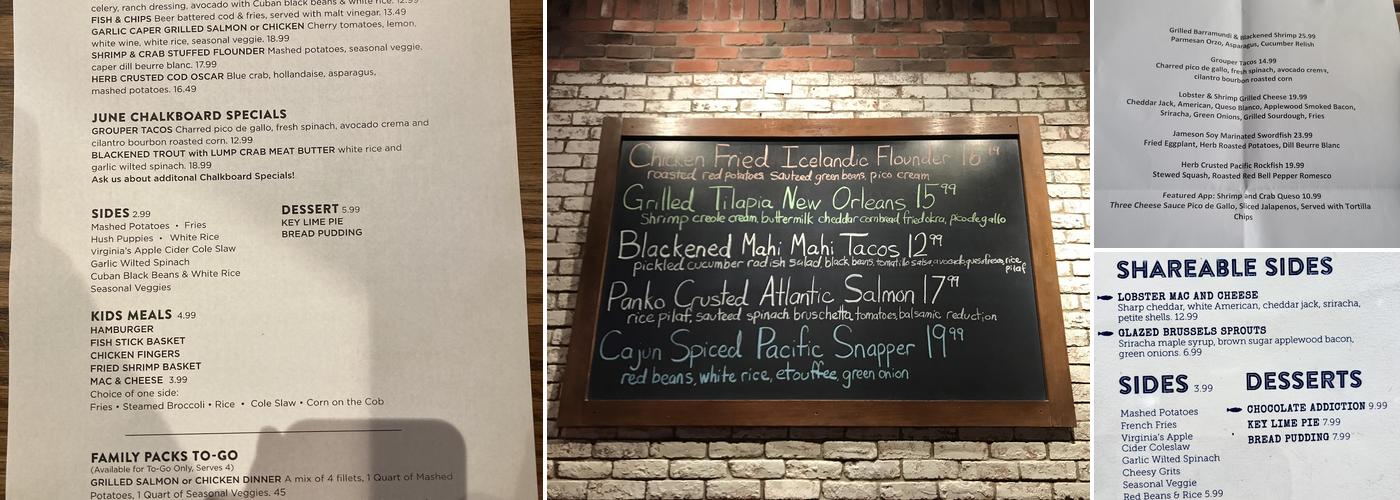 celery, ranch dressing, avocado with Cuban black beans & white rice. 12.99
FISH & CHIPS Beer battered cod & fries, served with malt vinegar. 13.49
GARLIC CAPER GRILLED SALMON or CHICKEN Cherry tomatoes, lemon,
white wine, white rice, seasonal veggie. 18.99
SHRIMP & CRAB STUFFED FLOUNDER Mashed potatoes, seasonal veggie.
caper dill beurre blanc. 17.99
HERB CRUSTED COD OSCAR Blue crab, hollandaise, asparagus,
mashed potatoes. 16.49
JUNE CHALKBOARD SPECIALS
GROUPER TACOS Charred pico de gallo, fresh spinach, avocado crema and
cilantro bourbon roasted corn. 12.99
BLACKENED TROUT with LUMP CRAB MEAT BUTTER white rice and
garlic wilted spinach. 18.99
Ask us about additonal Chalkboard Specials!
SIDES 2.99
Mashed Potatoes • Fries
Hush Puppies • White Rice
Virginia's Apple Cider Cole Slaw
Garlic Wilted Spinach
Cuban Black Beans & White Rice
Seasonal Veggies
DESSERT 5.99
KEY LIME PIE
BREAD PUDDING
KIDS MEALS 4.99
HAMBURGER
FISH STICK BASKET
CHICKEN FINGERS
FRIED SHRIMP BASKET
MAC & CHEESE 3.99
Choice of one side:
Fries • Steamed Broccoli • Rice • Cole Slaw • Corn on the Cob
FAMILY PACKS TO-GO
(Available for To-Go Only, Serves 4)
GRILLED SALMON or CHICKEN DINNER A mix of 4 fillets, 1 Quart of Mashed
Potatoes, 1 Quart of Seasonal Veggies. 45
Chicken Fried Icelandic Flounder 16 99
roasted red potatoes, sauteed green beans, pico cream
Grilled Tilapia New Orleans 15 99
Shrimp creole cream, buttermilk cheddar cornbread, fried okra, pico de gallo
Blackened Mahi Mahi Tacos 12 99
pickled cucumber radish salad, black beans, tomatillo salsa, avocado, queso fresco, rice
pilaf
Panko Crusted Atlantic Salmon 17 99
rice pilaf, sauteed spinach, bruschetta, tomatoes, balsamic reduction
Cajun Spiced Pacific Snapper 19 99
red beans, white rice, etouffee, green onion
Grilled Barramundi & Blackened Shrimp 25.99
Parmesan Orzo, Asparagus, Cucumber Relish
Grouper Tacos 14.99
Charred pico de gallo, fresh spinach, avocado crema,
cilantro bourbon roasted corn
Lobster & Shrimp Grilled Cheese 19.99
Cheddar Jack, American, Queso Blanco, Applewood Smoked Bacon,
Sriracha, Green Onions, Grilled Sourdough, Fries
Jameson Soy Marinated Swordfish 23.99
Fried Eggplant, Herb Roasted Potatoes, Dill Beurre Blanc
Herb Crusted Pacific Rockfish 19.99
Stewed Squash, Roasted Red Bell Pepper Romesco
Featured App: Shrimp and Crab Queso 10.99
Three Cheese Sauce Pico de Gallo, Sliced Jalapenos, Served with Tortilla
Chips
SHAREABLE SIDES
LOBSTER MAC AND CHEESE
Sharp cheddar, white American, cheddar jack, sriracha,
petite shells. 12.99
GLAZED BRUSSELS SPROUTS
Sriracha maple syrup, brown sugar applewood bacon,
green onions. 6.99
SIDES 3.99
Mashed Potatoes
French Fries
Virginia's Apple
Cider Coleslaw
Garlic Wilted Spinach
Cheesy Grits
Seasonal Veggie
Red Beans & Rice 5.99
DESSERTS
CHOCOLATE ADDICTION 9.99
KEY LIME PIE 7.99
BREAD PUDDING 7.99